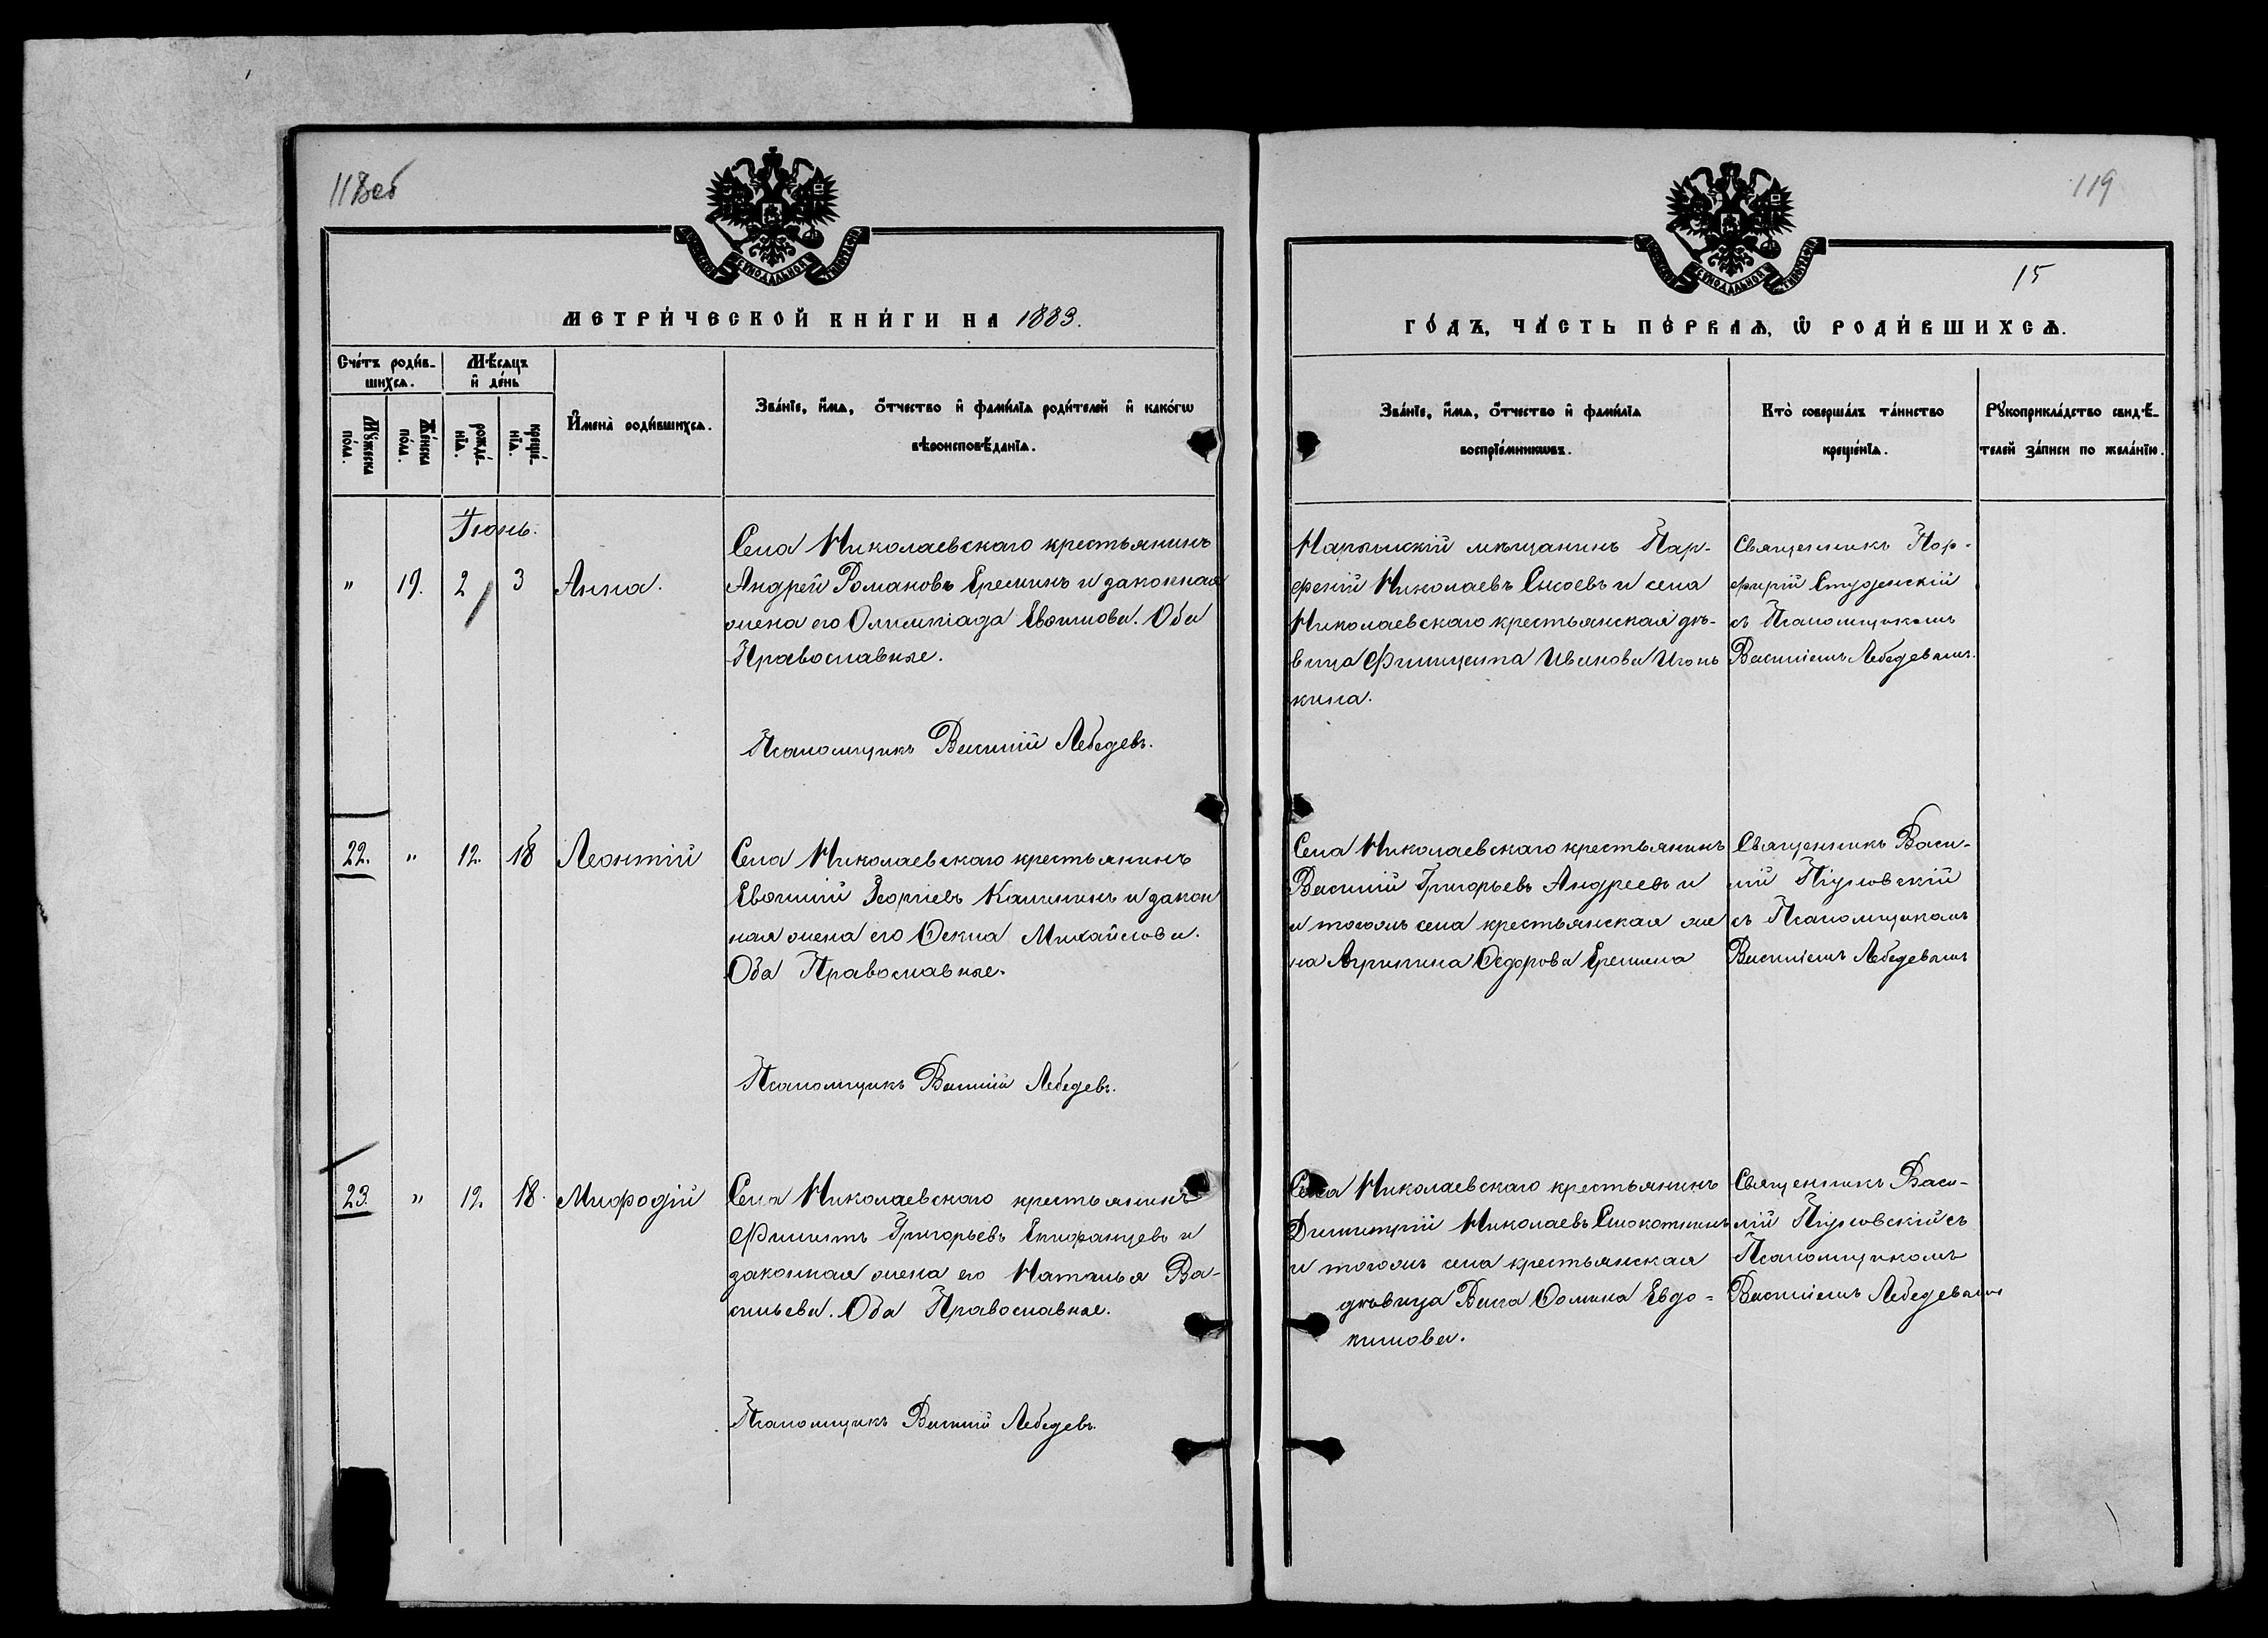 118об
МЕТРИ́ЧЕСКОЙ КНИ́ГИ НА 1883.
Сче́тъ роди́в-
шихсѧ.
Мѣ́сѧцъ
и де́нь
И҆мена̀ роди́вшихсѧ.
Зва́нїе, и҆́мѧ, ѻ҆́тчество и҆ фами́лїѧ роди́телей и҆ како́гѡ
вѣроисповѣ́данїѧ.
Мꙋ́жеска
по́ла.
Же́нска
по́ла.
рожде́-
нїѧ.
креще́-
нїѧ.
Іюнь.
" 19. 2 3 Анна.
Села Николаевскаго крестьянинъ
Андрей Романовъ Ереминъ и законная
жена его Олимпіада Евфимова. Оба
Православные.
Псаломщикъ Василій Лебедевъ.
22. " 12. 18 Леонтій
Села Николаевскаго крестьянинъ
Евфимій Георгіевъ и закон
ная жена его Ѳекла Михайлова.
Оба Православные.
Псаломщикъ Василій Лебедевъ.
23. " 12. 18. Меѳодій
Села Николаевскаго крестьянинъ
Филиппъ Григорьевъ Епифанцевъ и
законная жена его Наталья Ва-
сильева. Оба Православные.
Псаломщикъ Василій Лебедевъ.
119
15
ГО́ДЪ, ЧА́СТЬ ПЕ́РВАѦ, Ѡ҆ РОДИ́ВШИХСѦ.
Зва́нїе, и҆́мѧ, ѻ҆́тчество и҆ фами́лїѧ
воспрїе́мникѡвъ.
Кто̀ соверша́лъ та́инство
креще́нїѧ.
Рꙋкоприкла́дство свидѣ́-
телей за́писи по жела́нїю.
Нарымскій мѣщанинъ Пар-
феній Николаевъ Сысоевъ и села
Николаевскаго крестьянская дѣ-
вица Филицата Иванова Игонь
кина.
Священникъ Пор-
фирій Студенскій
съ Псаломщикомъ
Василіемъ Лебедевымъ.
Села Николаевскаго крестьянинъ
Василій Григорьевъ Андреевъ и
и тогожъ села крестьянская же
на Агрипина Ѳедорова Еремина
Священникъ Васи-
лій
съ Псаломщикомъ
Василіемъ Лебедевымъ
Села Николаевскаго крестьянинъ
Димитрій Николаевъ Смокотнинъ
и тогожъ села крестьянская
дѣвица Васса Ѳомина Евдо-
кимова.
Священникъ Васи-
лій съ
Псаломщикомъ
Василіемъ Лебедевымъ